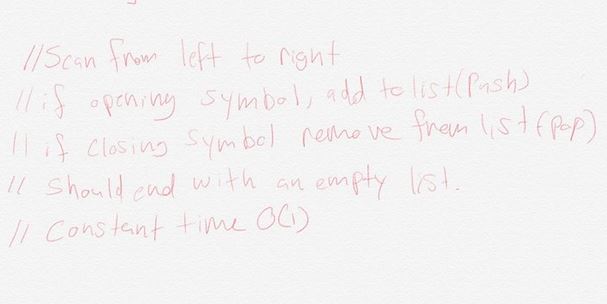 //Scan from left to right
// if opening symbol, add to list(Push)
// if closing symbol remove from list (pop)
// Should end with an empty list.
// Constant time O(1)